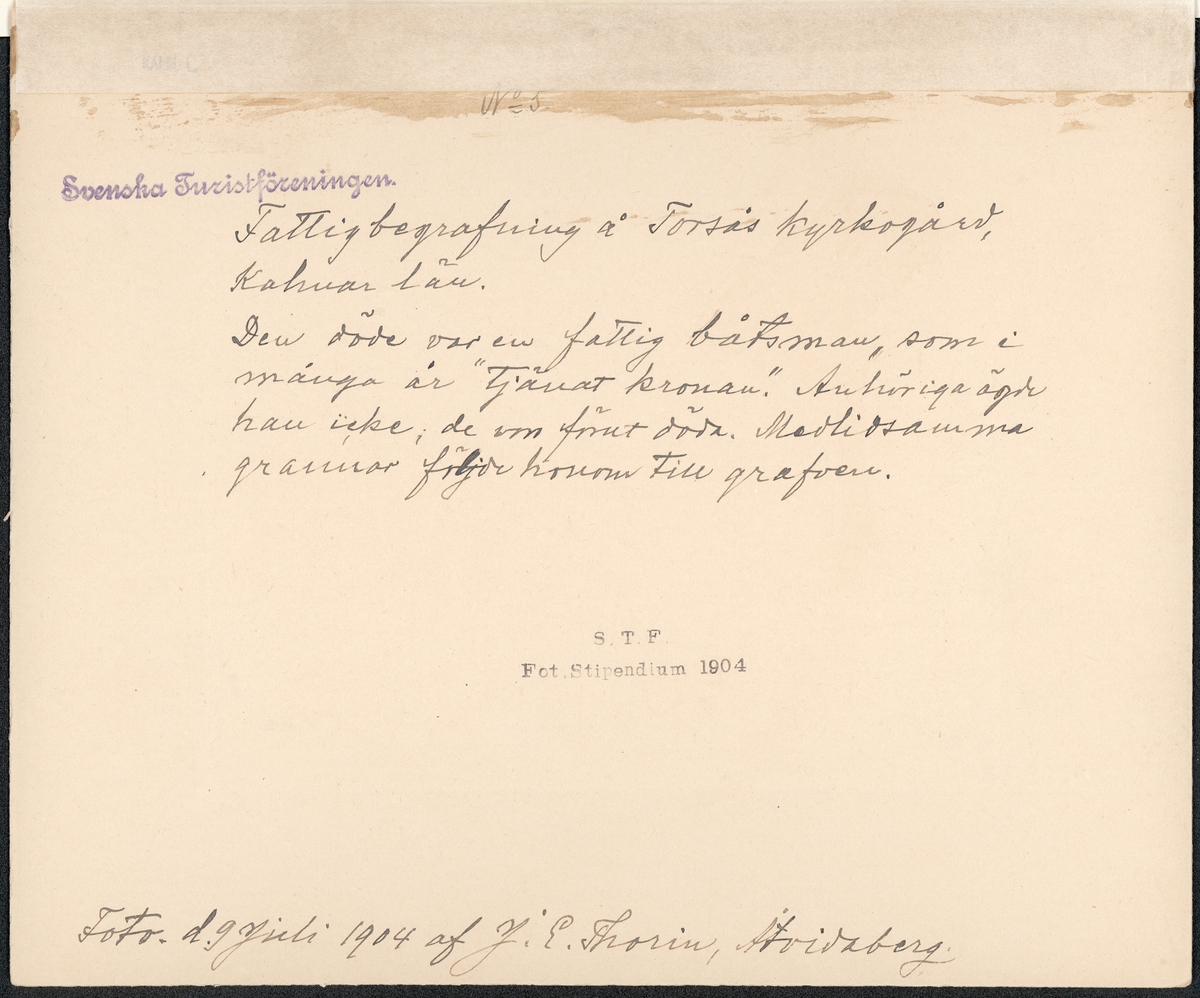 No 5
Svenska Turistföreningen.
Fattigbegrafning å Torsås kyrkogård,
Kalmar län.
Den döde var en fattig båtsman, som i
många år "tjänat kronan". Anhöriga ägde
han icke; de voro förut döda. Medlidsamma
grannar följde honom till grafven.
S. T. F.
Fot. Stipendium 1904
Foto. d. 9 Juli 1904 af J. E. Thorin, Åtvidaberg.